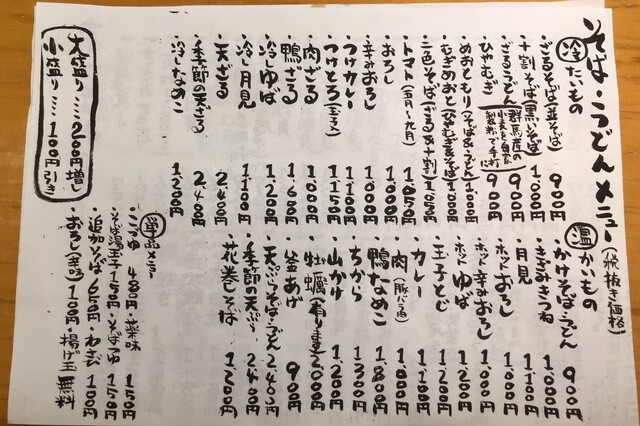 そば・うどんメニュー
(税抜き価格)
冷たいもの
ざるそば(並そば) 900円
十割そば(黒いそば) 1,000円
ざるうどん 900円
ひやむぎ 900円
群馬産の小麦を自家製粉で手打
めおともり(そば&うどん) 1,000円
むぎめおと(ひやむぎ&そば) 1,000円
二色そば(ざる&十割) 1,050円
トマト(五月〜九月) 1,050円
おろし 1,000円
辛みおろし 1,000円
つけカレー 1,100円
つけとろ 1,150円
肉ざる 1,000円
鴨ざる 1,600円
冷しゆば 1,200円
冷し月見 1,100円
天ざる 2,400円
季節の天ざる 2,400円
冷しなめこ 1,200円
大盛り 200円増
小盛り 100円引き
温かいもの
かけそば・うどん 900円
きざみきつね 1,000円
月見 1,100円
ホットおろし 1,000円
ホット辛みおろし 1,000円
ホットゆば 1,200円
玉子とじ 1,100円
カレー 1,100円
肉(豚バラ肉) 1,000円
鴨なめこ 1,800円
ちから 1,300円
山かけ 1,200円
牡蠣(有ります) 2,000円
釜あげ 900円
天ぷらそば・うどん 2,400円
季節の天ぷら 2,400円
花巻そば 1,200円
単品メニュー
・薬味 150円
・そば湯玉子 150円・そばつゆ 150円
・追加そば 650円・わさび 100円
・おろし(辛味) 100円・揚げ玉 無料